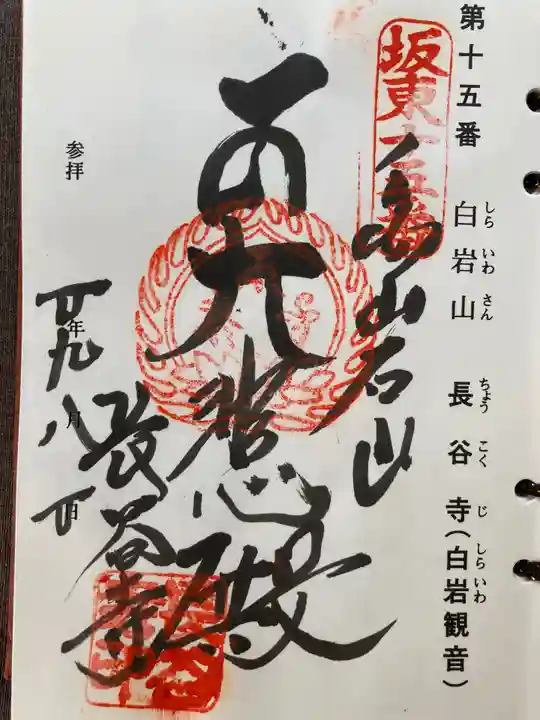 第十五番 白岩山 長谷寺(白岩観音)
しらいわさん ちょうこくじ しらいわ
坂東十五番
白岩山
大悲殿
長谷寺
参拝
廿九年八月廿日